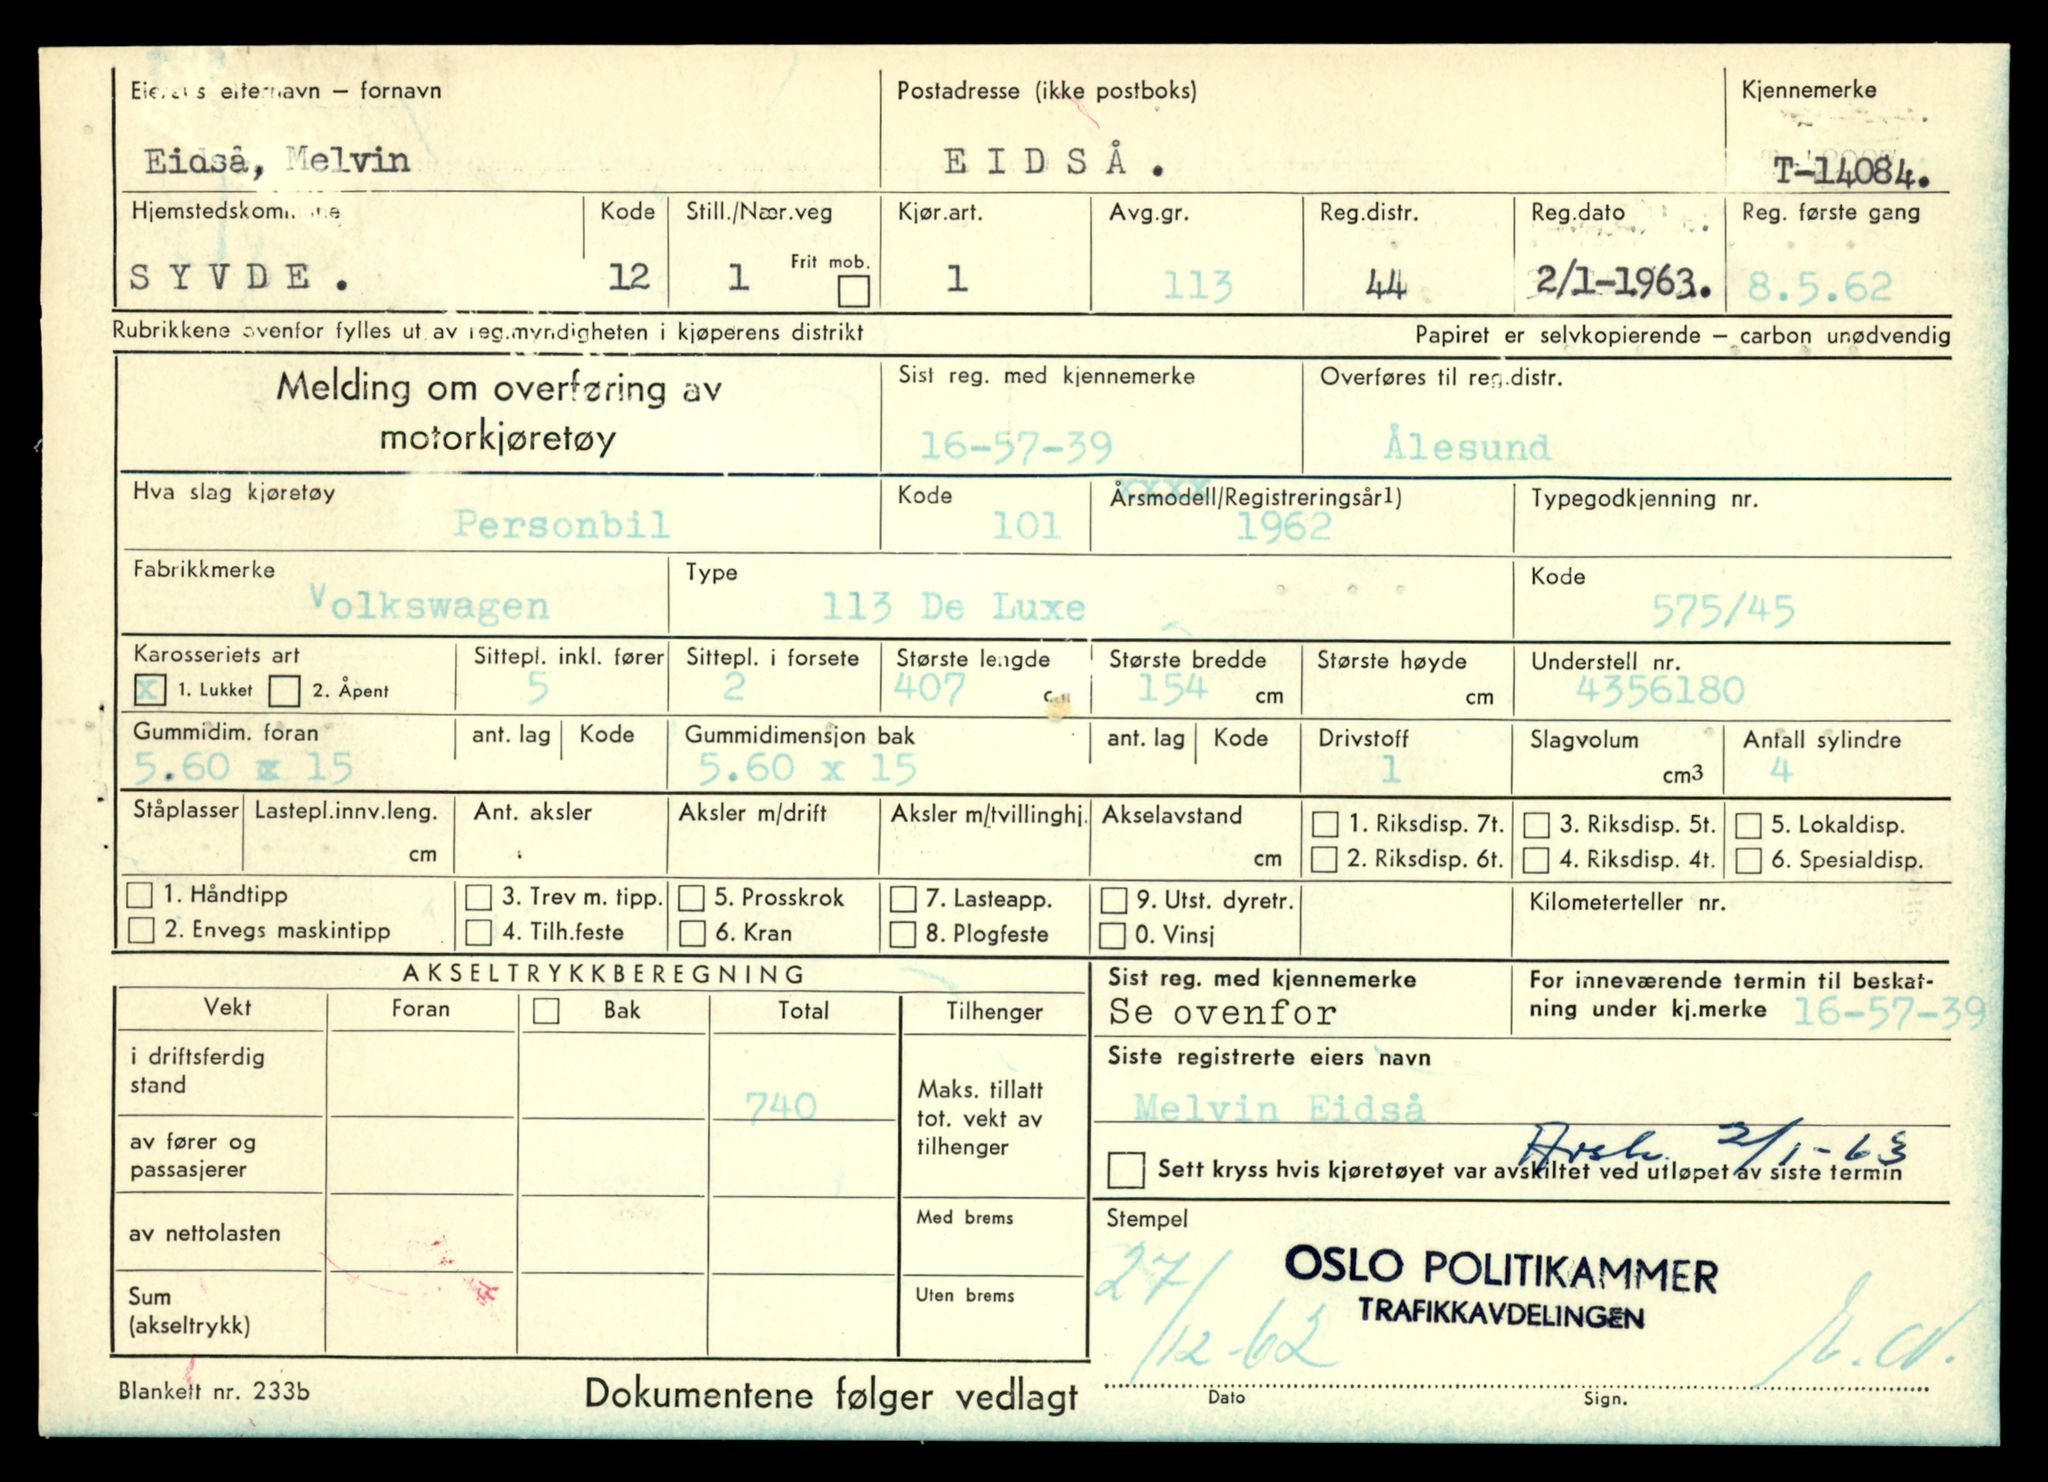 Eierens etternavn – fornavn Postadresse (ikke postboks) Kjennemerke
Eidså, Melvin EIDSÅ. T-14084.
Hjemstedskommune Kode Still./Nær.veg Kjør.art. Avg.gr. Reg.distr. Reg.dato Reg. første gang
SYVDE. 12 1 Frit mob. 1 113 44 2/1-1963. 8.5.62
Rubrikkene ovenfor fylles ut av reg.myndigheten i kjøperens distrikt Papiret er selvkopierende – carbon unødvendig
Melding om overføring av motorkjøretøy
Sist reg. med kjennemerke Overføres til reg.distr.
16-57-39 Ålesund
Hva slag kjøretøy Kode Årsmodell/Registreringsår1) Typegodkjenning nr.
Personbil 101 xxxx 1962
Fabrikkmerke Type Kode
Volkswagen 113 De Luxe 575/45
Karosseriets art Sittepl. inkl. fører Sittepl. i forsete Største lengde Største bredde Største høyde Understell nr.
x 1. Lukket 2. Åpent 5 2 407 cm 154 cm cm 4356180
Gummidim. foran ant. lag Kode Gummidimensjon bak ant. lag Kode Drivstoff Slagvolum Antall sylindre
5.60 x 15 5.60 x 15 1 cm3 4
Ståplasser Lastepl.innv.leng. Ant. aksler Aksler m/drift Aksler m/tvillinghj. Akselavstand 1. Riksdisp. 7t. 3. Riksdisp. 5t. 5. Lokaldisp.
cm cm 2. Riksdisp. 6t. 4. Riksdisp. 4t. 6. Spesialdisp.
1. Håndtipp 3. Trev m. tipp. 5. Prosskrok 7. Lasteapp. 9. Utst. dyretr. Kilometerteller nr.
2. Envegs maskintipp 4. Tilh.feste 6. Kran 8. Plogfeste 0. Vinsj
AKSELTRYKKBEREGNING
Vekt Foran Bak Total Tilhenger
i driftsferdig stand 740
Maks. tillatt tot. vekt av tilhenger
av fører og passasjerer
av nettolasten Med brems
Sum (akseltrykk) Uten brems
Sist reg. med kjennemerke For inneværende termin til beskat-
Se ovenfor ning under kj.merke 16-57-39
Siste registrerte eiers navn
Melvin Eidså
2/1-63
Sett kryss hvis kjøretøyet var avskiltet ved utløpet av siste termin
Stempel
27/12-62
OSLO POLITIKAMMER
TRAFIKKAVDELINGEN
Dato Sign.
Blankett nr. 233b Dokumentene følger vedlagt